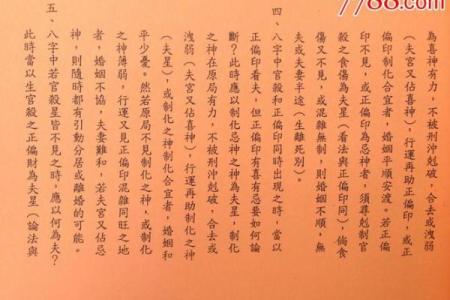 7788.com
為喜神有力，不被刑沖剋破，合去或洩弱
（夫宮又佔喜神），行運再助正偏印，或正
偏印制化合宜者，婚姻平順安渡。若正偏
印不見，或正偏印為忌神者，須尋剋制官
殺之食傷為夫星（看法與正偏印同），倘食
傷又不見，或混雜無制，則婚姻不順，無
夫或夫妻半途（生離死別）。
四、八字中官殺和正偏印同時出現之時，當以
正偏印看夫，但正偏印有喜有忌要如何論
斷？此時應以制化忌神之神為夫星，合去或
之神在原局有力，不被刑沖剋破，合去或
洩弱（夫宮又佔喜神），行運再助制化之神
（夫星），或制化之神制化合宜者，婚姻和
平少憂。然若原局不見制化之神，或制化
之神薄弱，行運又見正偏印混雜同旺之地
者，婚姻不協，夫妻難和，若夫宮又佔忌
神，則隨時都有引動分居或離婚的可能。
五、八字中若官殺星皆不見之時，應以何為夫？
此時當以生官殺之正偏財為夫星（論法與